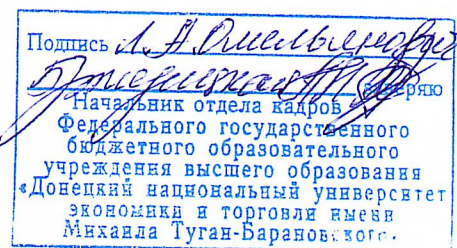 Подпись Л.А.Омельянович
заверяю
Начальник отдела кадров
Федерального государственного
бюджетного образовательного
учреждения высшего образования
«Донецкий национальный университет
экономики и торговли имени
Михаила Туган-Барановского»